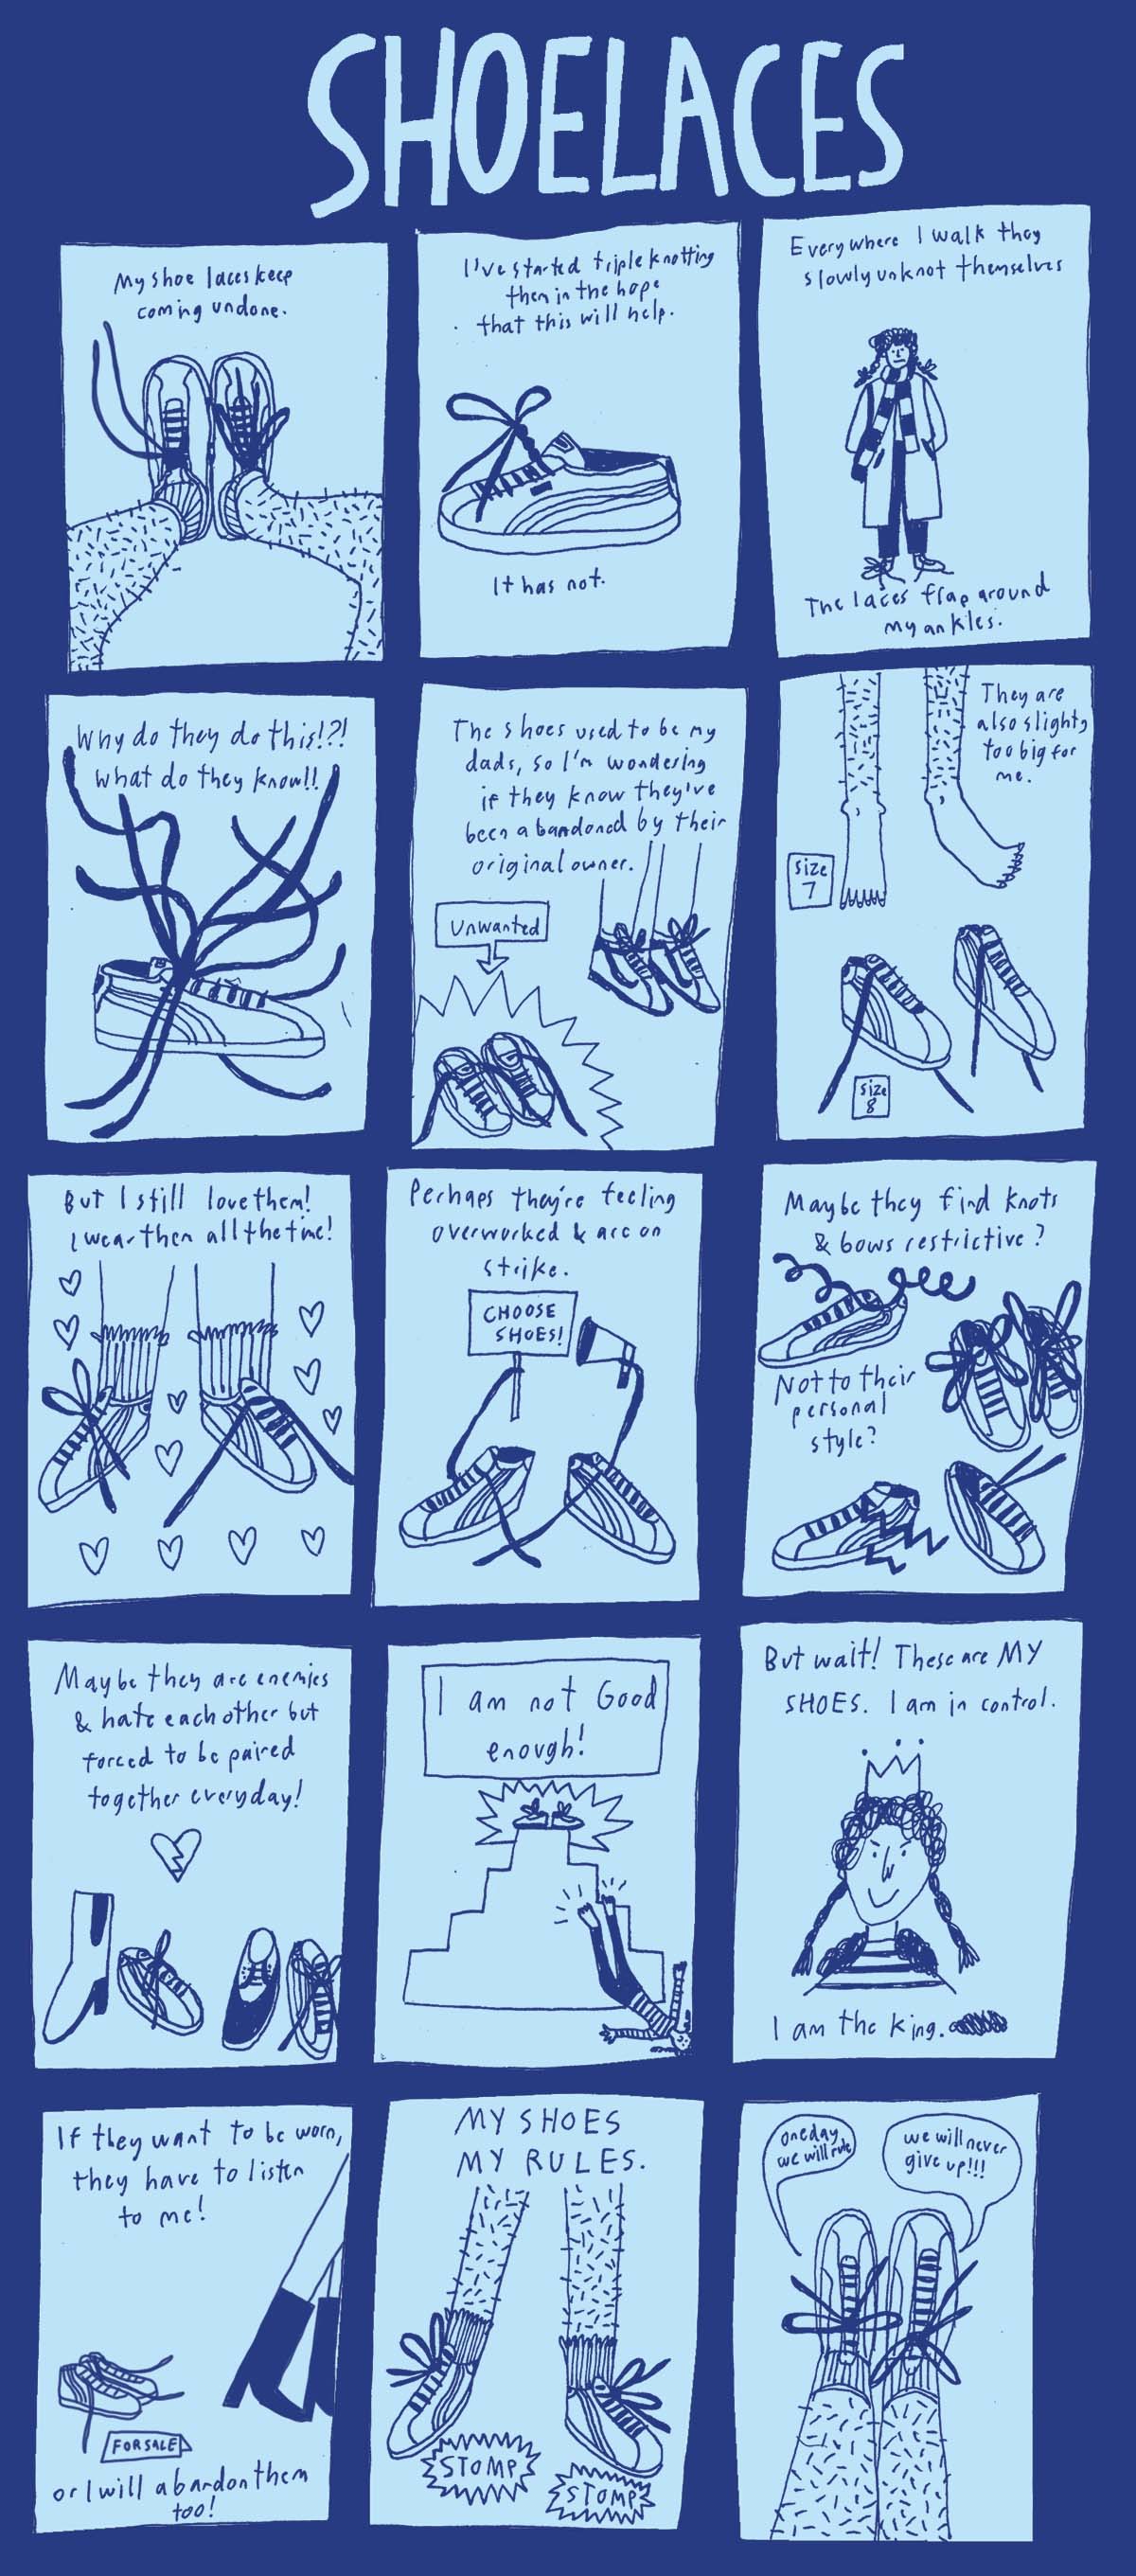 SHOELACES
My shoe laces keep
coming undone.
I've started triple knotting
them in the hope
that this will help.
It has not.
Everywhere I walk they
slowly unknot themselves
The laces flap around
my ankles.
Why do they do this!?!
What do they know!!
The shoes used to be my
dads, so I'm wondering
if they know they've
been abandoned by their
original owner.
Unwanted
They are
also slighty
too big for
me.
size
7
size
8
But I still love them!
I wear them all the time!
Perhaps they're feeling
overworked & are on
strike.
CHOOSE
SHOES!
Maybe they find knots
& bows restrictive?
Not to their
personal
style?
Maybe they are enemies
& hate each other but
forced to be paired
together everyday!
I am not Good
enough!
But wait! These are MY
SHOES. I am in control.
I am the king.
If they want to be worn,
they have to listen
to me!
FOR SALE
or I will abandon them
too!
MY SHOES
MY RULES.
STOMP
STOMP
one day
we will rule
we will never
give up!!!